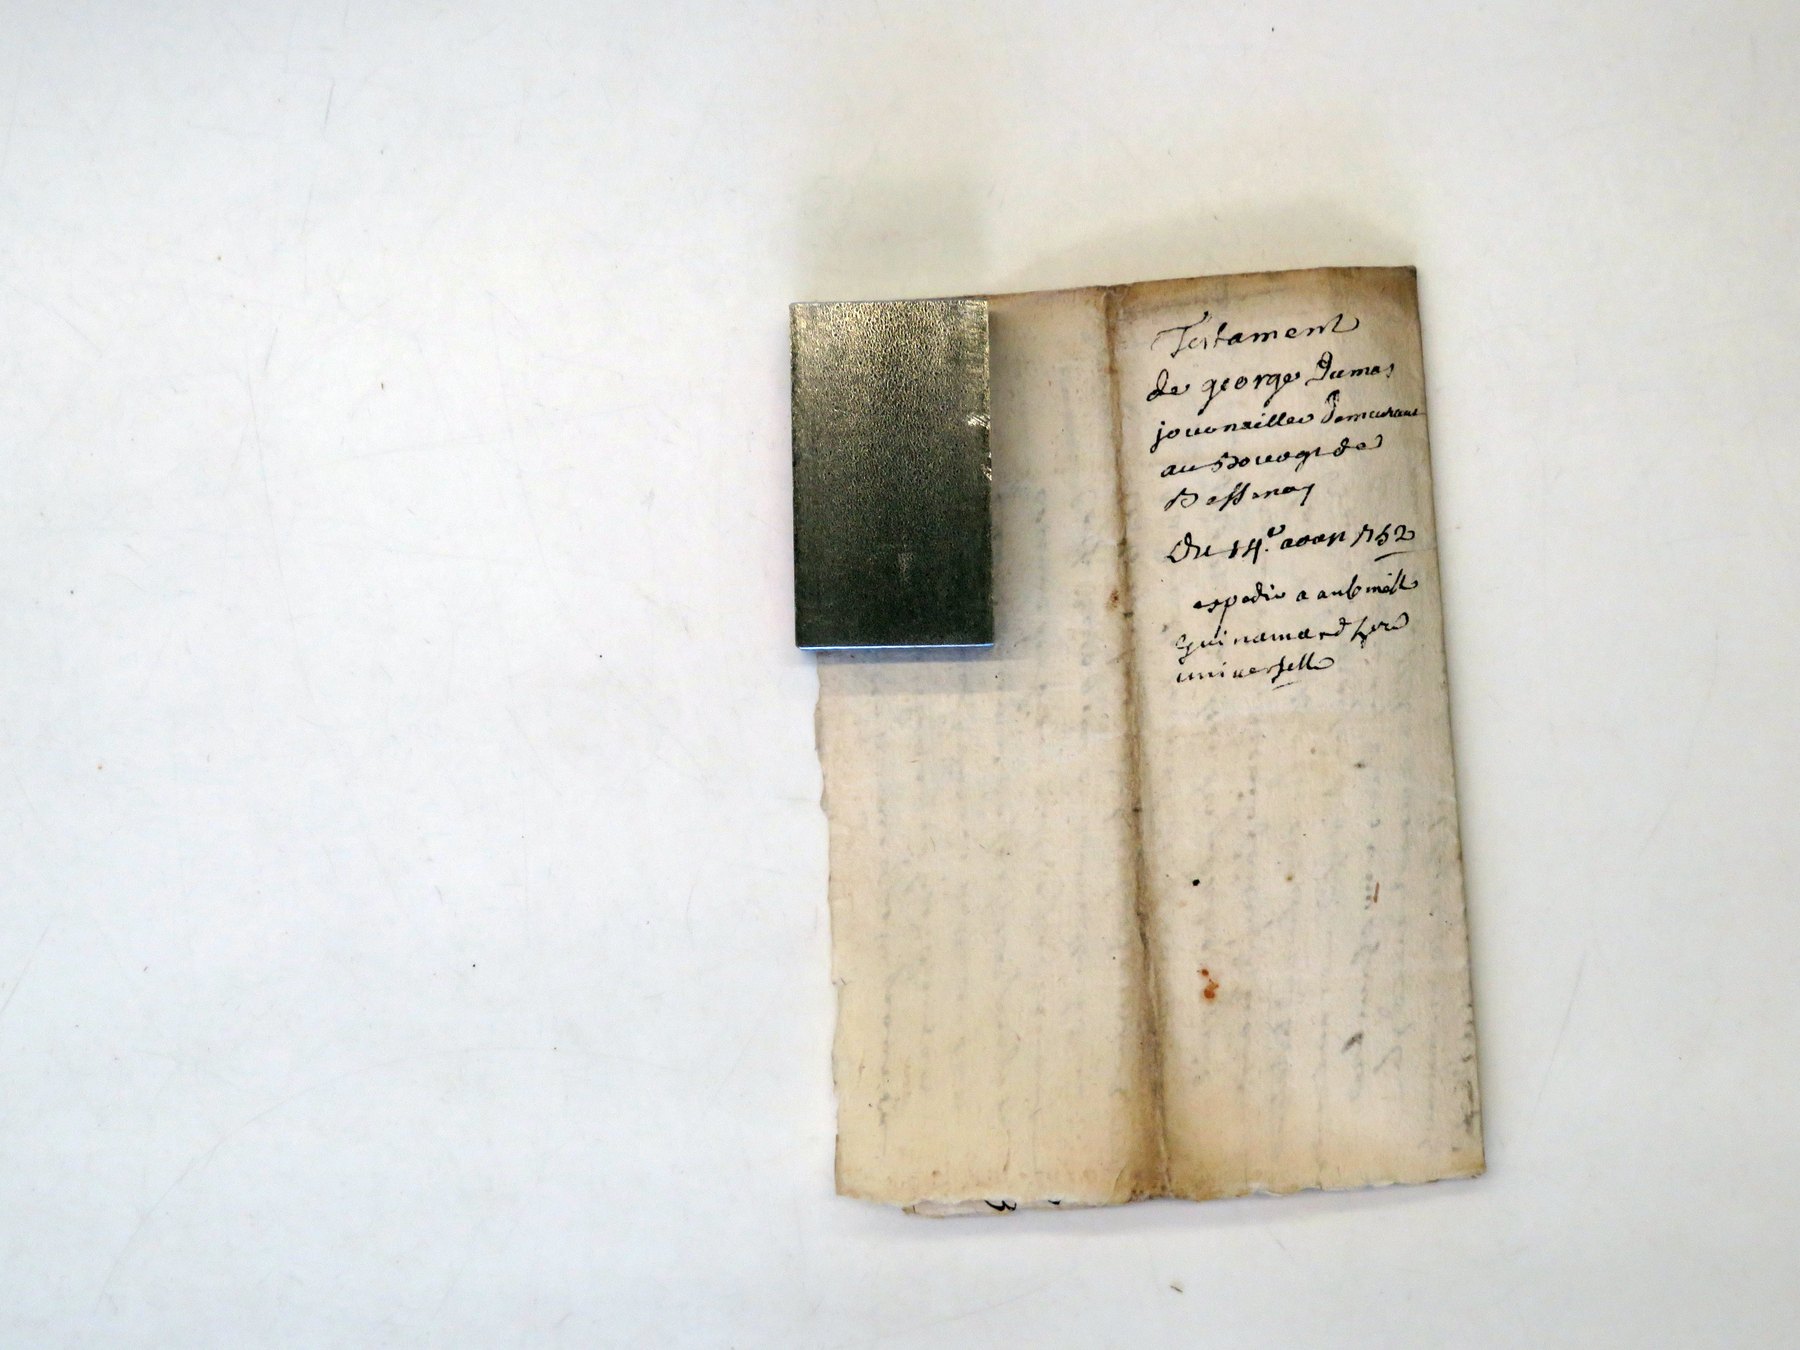 Testament
de george Dumas
journaillier demeurant
au Bourg de
Bessenay
Du 14.e aoust 1752
expedie a
guinamard here
universelle